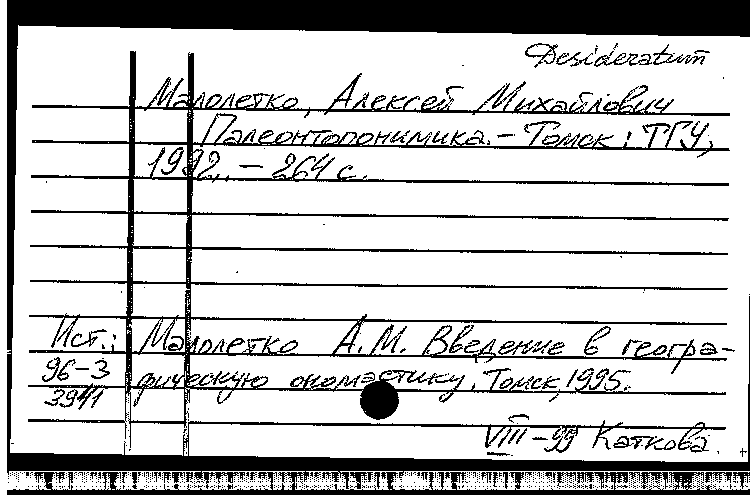 Desideratum
Малолетко, Алексей Михайлович
Палеонтопонимика. – Томск: ТГУ,
1992. – 264 с.
Ист.: Малолетко А.М. Введение в геогра-
96-3 фическую ономастику. Томск, 1995.
3941
VIII – 99 Каткова.